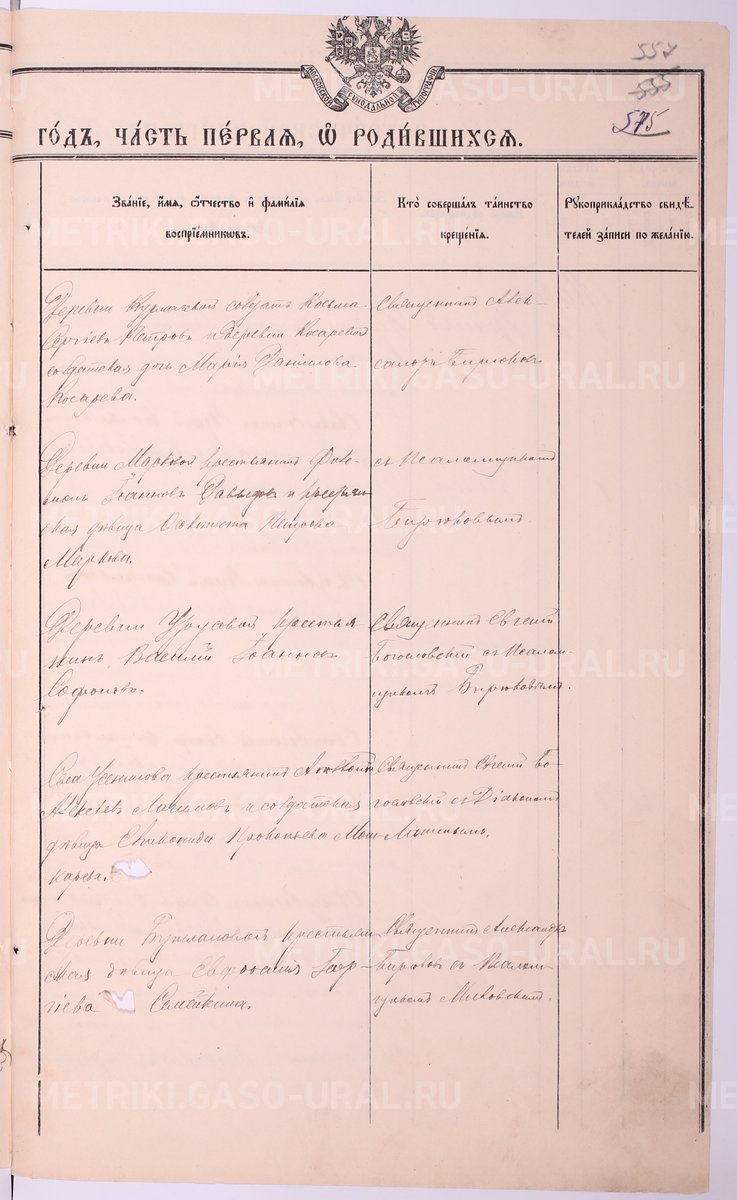 557
535
575
МОСКОВСКОЙ СѴНОДАЛЬНОЙ ТИПОГРАФІИ
ГО́ДЪ, ЧА́СТЬ ПЕ́РВАЯ, Ѡ҆ РОДИ́ВШИХСЯ.
Зва́нїе, и҆́мя, ѻ҆́тчество и҆ фами́лїя
воспрїе́мникѡвъ.
Кто̀ соверша́лъ та́инство
креще́нїя.
Рꙋкоприкла́дство свидѣ́-
телей за́писи по жела́нїю.
Деревни солдатъ Косьма
Сергіевъ Петровъ и деревни Косаревой
солдатская дочь Марія Даніилова
Косарева.
Священникъ Алек-
сандръ Бирюковъ
Деревни Марковой крестьянинъ
Іоанновъ Давыдовъ и крестьян
ская дѣвица Петрова
Маркова.
съ Псаломщикомъ
Бирюковымъ.
Деревни крестья-
нинъ Василій Іоанновъ
Софоновъ.
Священникъ Евгеній
Богословскій съ Псалом-
щикомъ Бирюковымъ.
Села крестьянинъ
Алексѣевъ и солдатская
дѣвица Прокопьева Мок
карева.
Священникъ Евгеній Бо-
гословскій съ Діакономъ
Деревни крестьян
ская дѣвица Евфросинія Геор-
гіева Семейкина.
Священникъ Александръ
Бирюковъ съ Псалом
щикомъ
METRIKI.GASO-URAL.RU